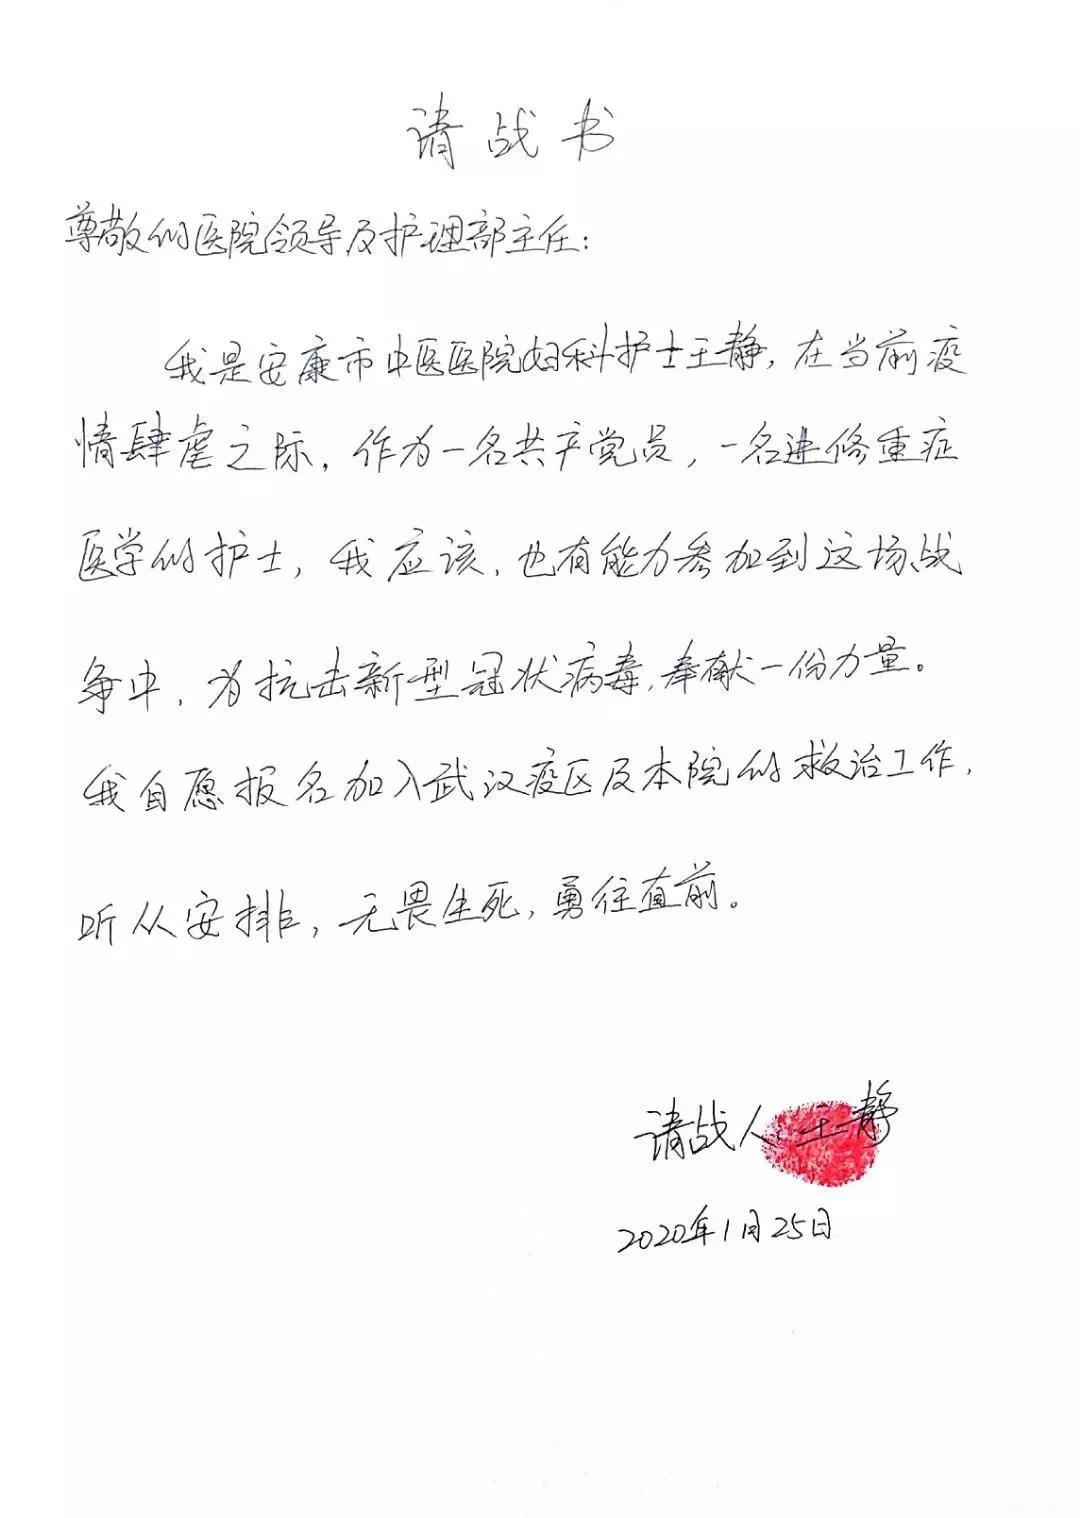 请战书
尊敬的医院领导及护理部主任:
我是安康市中医医院妇科护士王静,在当前疫
情肆虐之际,作为一名共产党员,一名进修重症
医学的护士,我应该、也有能力参加到这场战
争中,为抗击新型冠状病毒,奉献一份力量。
我自愿报名加入武汉疫区及本院的救治工作,
听从安排,无畏生死,勇往直前。
请战人:王静
2020年1月25日